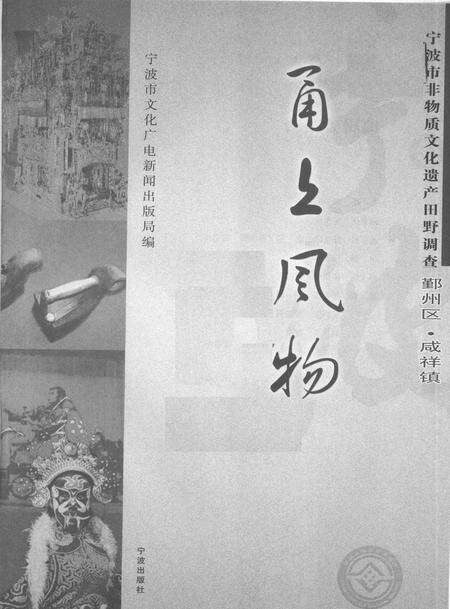 宁波市非物质文化遗产田野调查
鄞州区·咸祥镇
甬上风物
宁波市文化广电新闻出版局编
宁波出版社